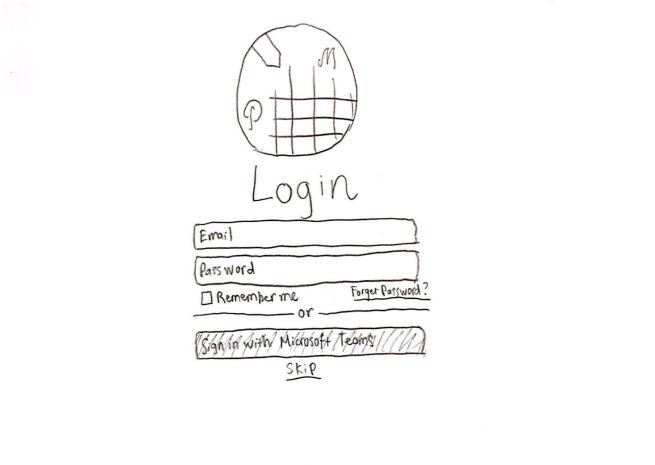 M
P
Login
Email
Password
Remember me Forget Password?
or
Sign in with Microsoft Teams
Skip